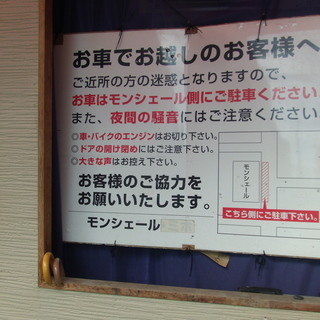 お車でお越しのお客様へ
ご近所の方の迷惑となりますので、
お車はモンシェール側にご駐車ください
また、夜間の騒音にはご注意ください
◎車・バイクのエンジンはお切り下さい。
◎ドアの開け閉めにはご注意下さい。
◎大きな声はお控え下さい。
お客様のご協力を
お願いいたします。
モンシェール
モンシェール
こちら側にご駐車下さい。